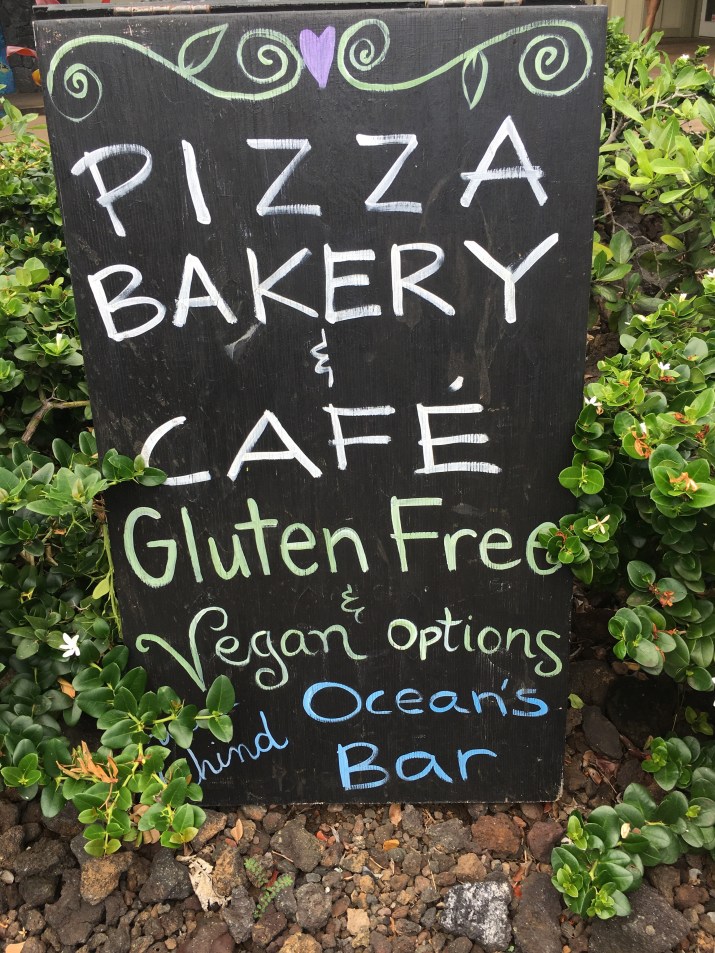 PIZZA
BAKERY
&
CAFÉ
Gluten Free
&
Vegan Options
Ocean's
hind Bar